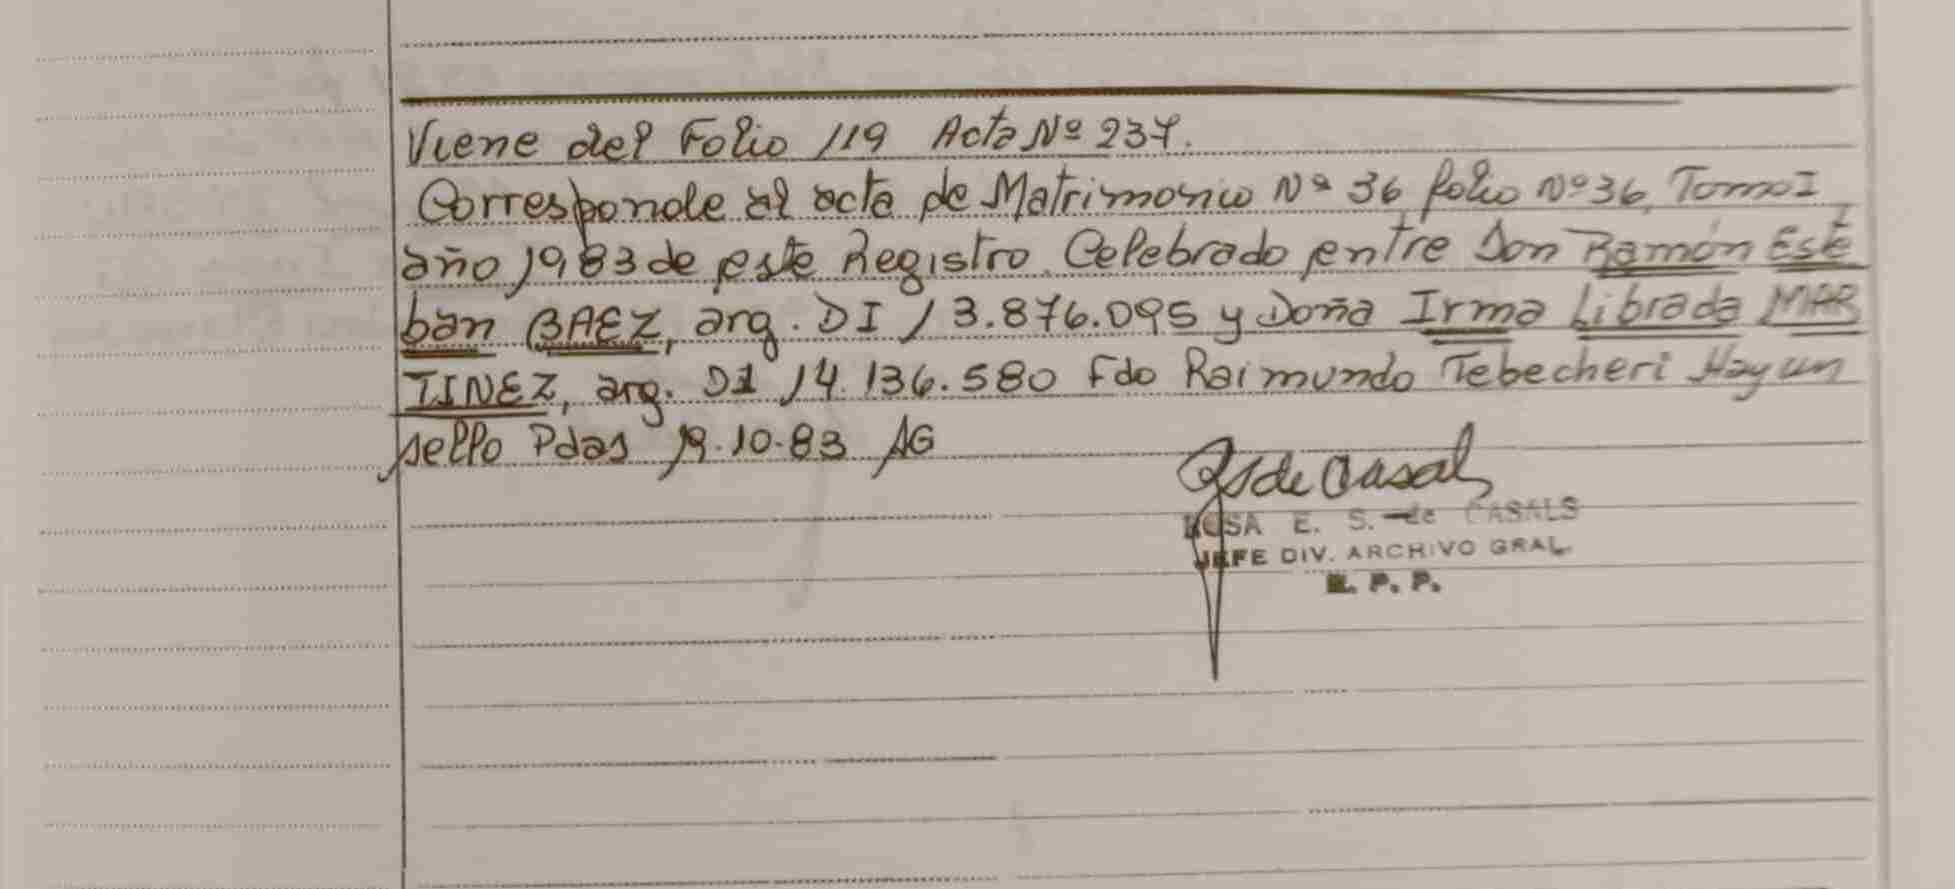 Viene del Folio 119 Acta Nº 237.
Corresponde al acta de Matrimonio Nº 36 folio Nº 36, Tomo I
año 1983 de este Registro. Celebrado entre Don Ramón Este
ban BAEZ, arg. DI 13.876.095 y Doña Irma Librada MAR
TINEZ, arg. DI 14.136.580 Fdo Raimundo Tebecheri Hay un
sello Pdas 19.10.83 AG
RS de Casals
ROSA E. S. de CASALS
JEFE DIV. ARCHIVO GRAL.
R. P. P.